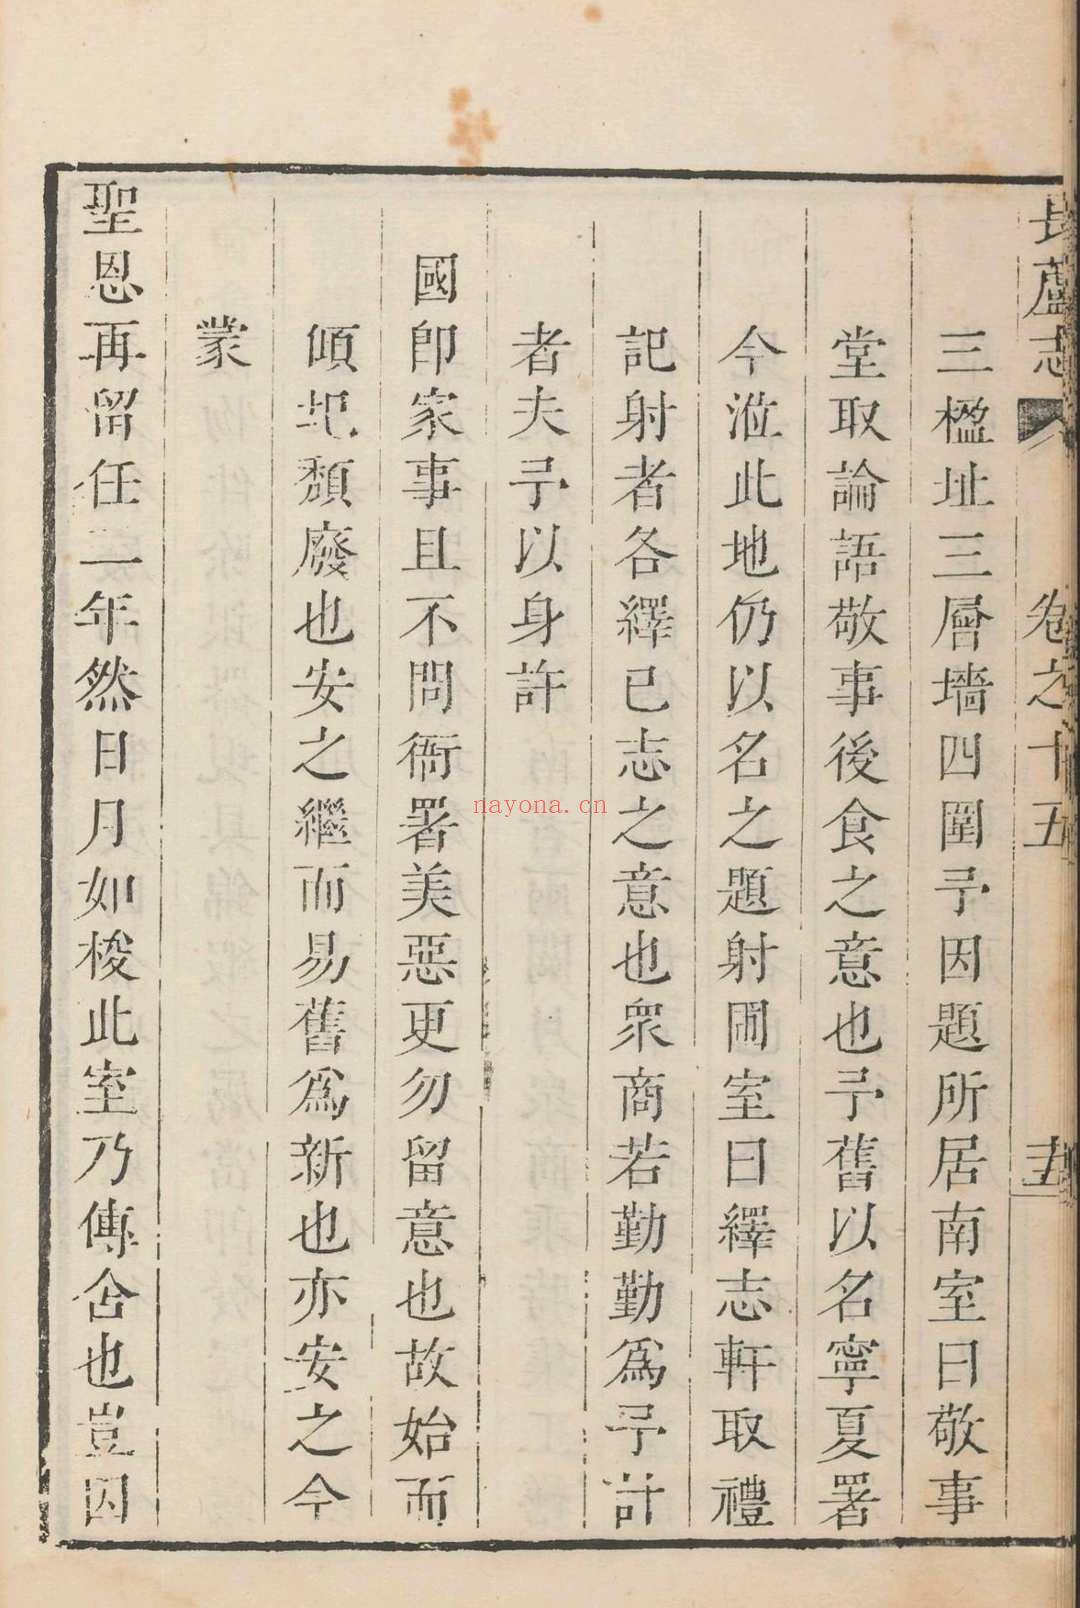 長蘆志 卷之十五 十五
三楹址三層墻四圍予因題所居南室曰敬事
堂取論語敬事後食之意也予舊以名寧夏署
今涖此地仍以名之題射圃室曰繹志軒取禮
記射者各繹已志之意也衆商若勤勤爲予計
者夫予以身許
國卽家事且不問衙署美惡更勿留意也故始而
傾圯頽廢也安之繼而易舊爲新也亦安之今
蒙
聖恩再留任二年然日月如梭此室乃傳舍也豈因
nayona.cn